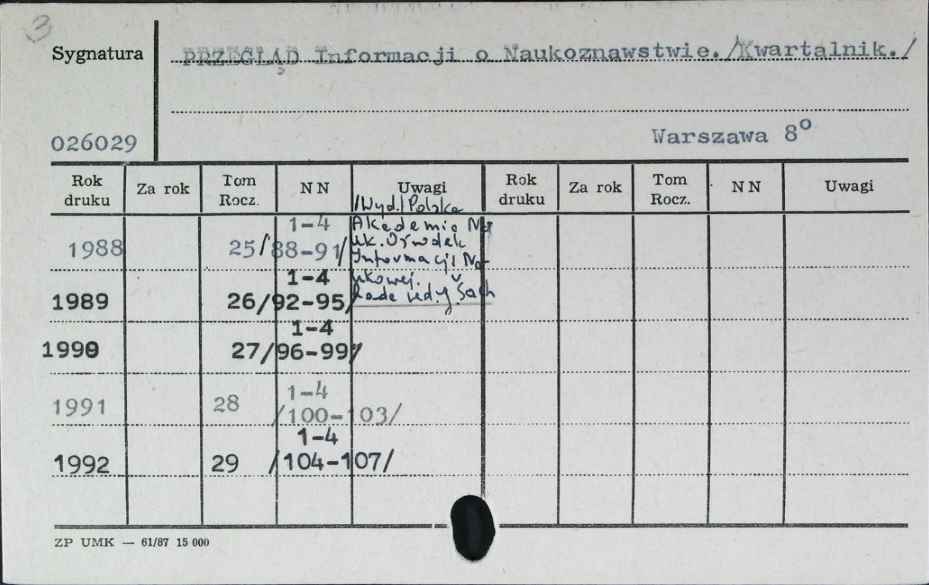 3
Sygnatura
PRZEGLĄD Informacji o Naukoznawstwie./Kwartalnik./
026029
Warszawa 8°
Rok druku Za rok Tom Rocz. NN Uwagi Rok druku Za rok Tom Rocz. NN Uwagi
/Wyd./Polska
Akademia Na
uk. Ośrodek
Informacji Na-
ukowej.
1988 25/88-91/ 1-4
1989 26/92-95/ 1-4
1990 27/96-99/ 1-4
1991 28 /100-103/ 1-4
1992 29 /104-107/ 1-4
ZP UMK — 61/87 15 000